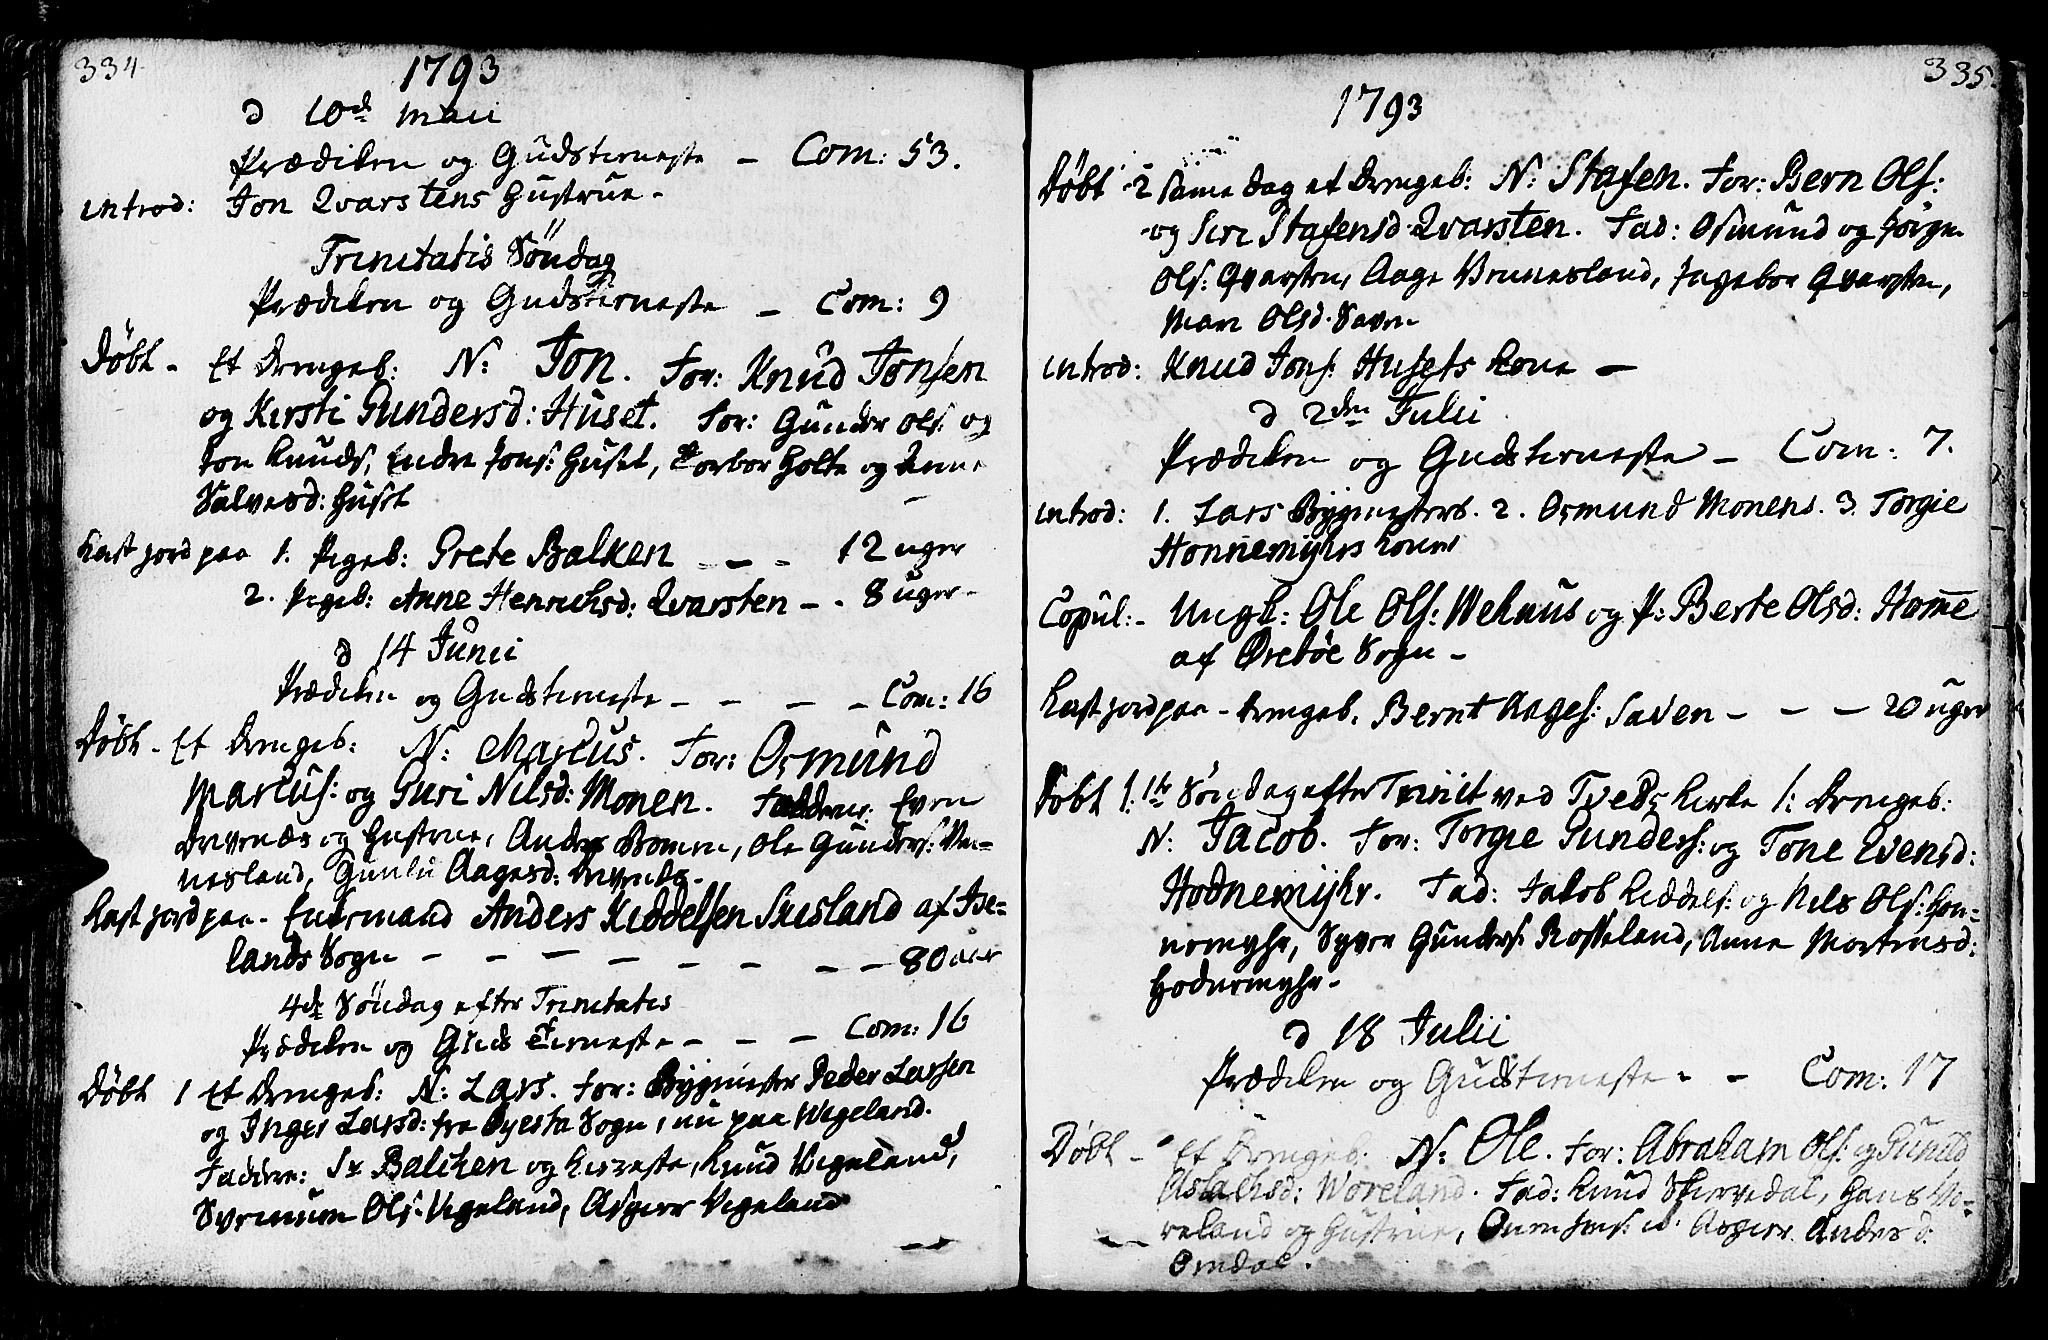 334
1793
d 10de Maii
Prædiken og Gudstieneste – Com: 53.
introd: Jon Qvarstens Hustrue.
Trinitatis Söndag
Prædiken og Gudstieneste – Com: 9
Döbt – Et Drengeb: N: Jon. For: Knud Jonsen
og Kirsti Gundersd: Huset. For: Gunder Ols: og
Jon Knuds, Endre Jons: Huset, Torbor Holte og Anne
Salvesd: Huset
Kast jord paa 1. Pigeb: Grete Balken – – – 12 uger
2. Pigeb: Anne Henrichsd: Qvarsten – . 8 uger –
d 14 Junii
Prædiken og Gudstieneste – – – – Com: 16
Döbt – Et Drengeb: N: Marcus. For: Osmund
Marcus: og Guri Nilsd: Monen. Faddere: Even
Drivenæs og Hustrue, Anders Bomen, Ole Gunders: Ven–
nesland, Gunlu Aagesd: Drivenæs.
Kast jord paa – Enkemand Anders Kiddelsen Suesland af Ise=
lands Sogn – – – – – – – – 80 aar
4de Söndag efter Trinitatis
Prædiken og Gudstieneste – – – Com: 16
Döbt 1 Et Drengeb: N: Lars. For: Bygmester Peder Larsen
og Inger Larsd: fra Oyesta Sogn, nu paa Vigeland.
Faddere: Sr Balchen og Kiereste, Knud Vigeland,
Syvernum Ols: Vigeland, Asgier Vigeland
335.
1793
Döbt 2 Same Dag et Drengeb: N: Stafen. For: Bern Ols:
og Siri Stafensd Qvarsten. Fad: Osmund og Jörgen
Ols: Qvarsten, Aage Vennesland, Ingebor Qvarsten,
Mari Olsd. Saven
introd: Knud Jons: Husets Kone –
d 2den Julii
Prædiken og Gudstieneste – Com: 7.
introd: 1. Lars Bygmesters. 2. Osmund Monens. 3. Torgie
Honnemyhrs koner
Copul: – Ungk: Ole Ols: Wehuus og P: Berte Olsd: Home
af Øvebøe Sogn –
Kast jord paa – Drengeb. Bernt Aages: Saven – – – 20 uger
Döbt 1: 1te Söndag efter Trinit ved Tveds Kirke 1: Drengeb:
N: Jacob. For: Torgie Gunders: og Tone Evensd:
Hodnemyhr. Fad: Jacob Kiddels: og Nels Ols: Hon=
nemyhr, Syver Gunders: Rosseland, Anne Mortensd:
Hodnemyhr.
d 18 Julii
Prædiken og Gudstieneste – – Com: 17
Döbt – Et Drengeb: N: Ole. For: Abraham Ols: og Gunild
Aslachsd: Woreland. Fad: Knud Skiervedal, Hans Wo=
reland og Hustrue, Asgier Andersd:
Omdal.